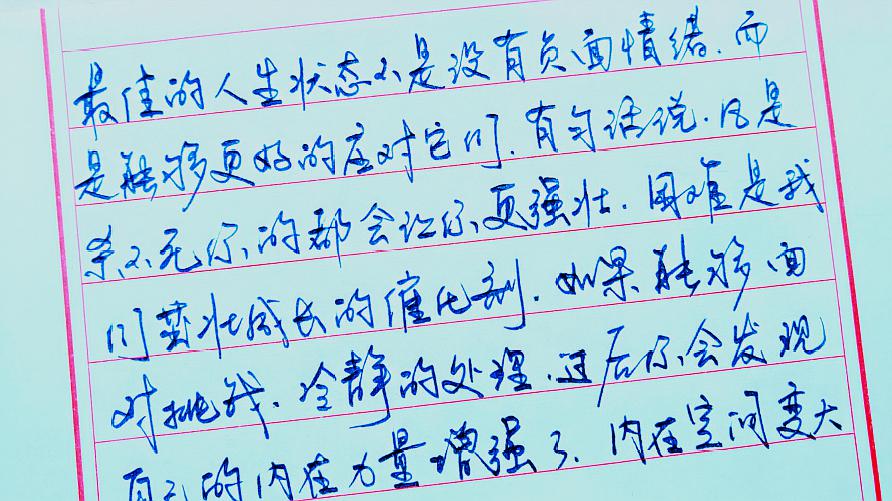 最佳的人生状态不是没有负面情绪.而
是能够更好的应对它们.有句话说.凡是
杀不死你的都会让你更强壮.困难是我
们茁壮成长的催化剂.如果能够面
对挑战.冷静的处理.过后你会发现
自己的内在力量增强了.内在空间变大